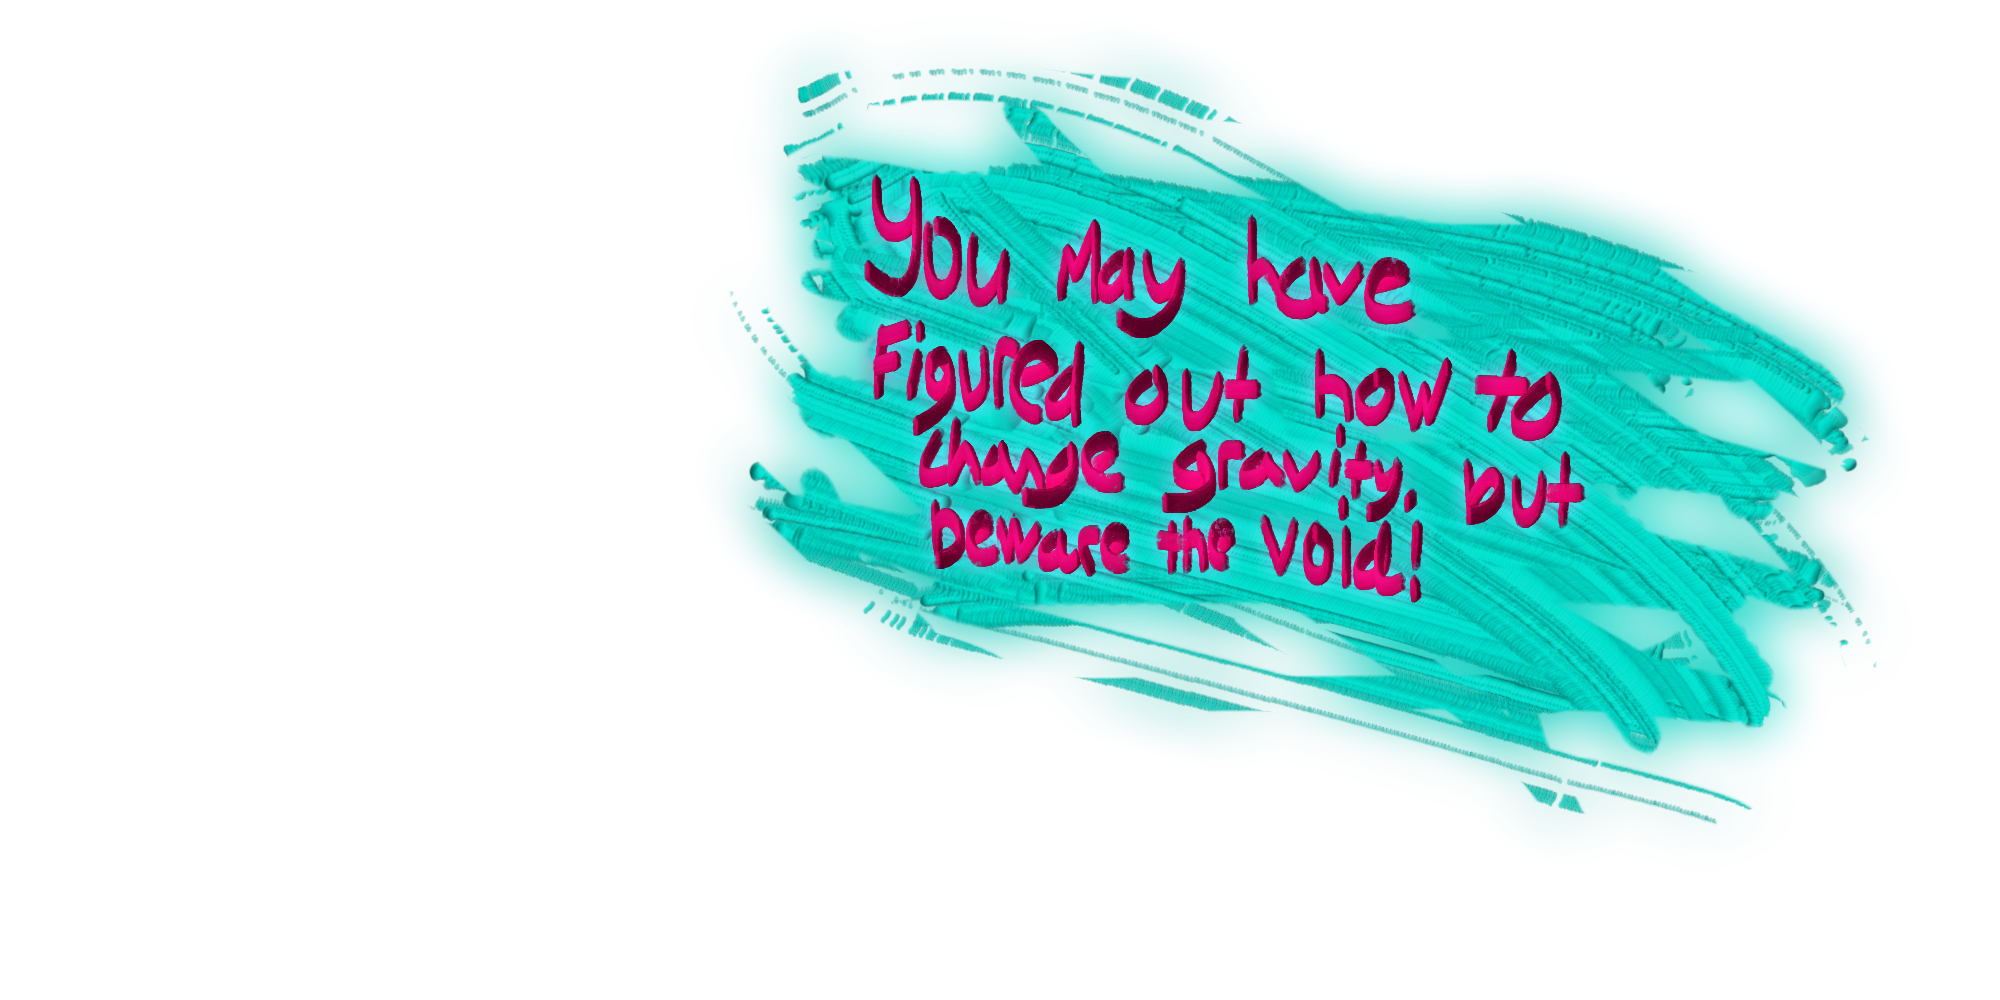 You May have
Figured out how to
change gravity, but
beware the Void!